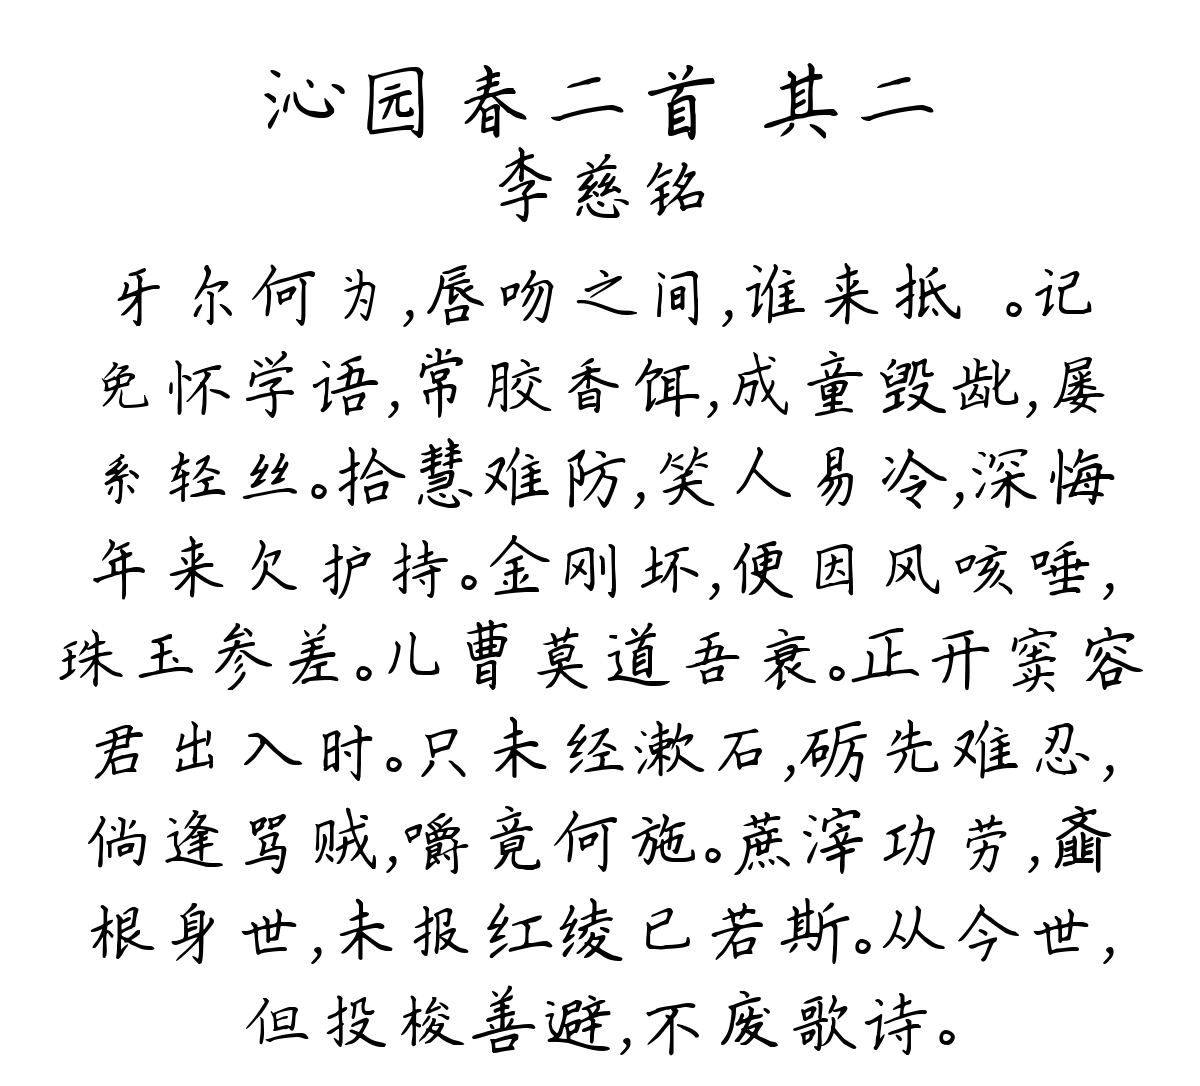 沁园春二首 其二
李慈铭
牙尔何为,唇吻之间,谁来抵 。记
免怀学语,常胶香饵,成童毁龀,屡
系轻丝。拾慧难防,笑人易冷,深悔
年来欠护持。金刚坏,便因风咳唾,
珠玉参差。儿曹莫道吾衰。正开窦容
君出入时。只未经漱石,砺先难忍,
倘逢骂贼,嚼竟何施。蔗滓功劳,齑
根身世,未报红绫已若斯。从今世,
但投梭善避,不废歌诗。